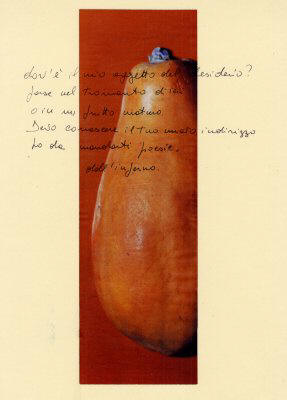 dov'è il mio oggetto del desiderio?
forse nel tramonto di ieri
o in un frutto maturo
Devo conoscere il tuo nuovo indirizzo
ho da mandarti poesie.
dall'inferno.